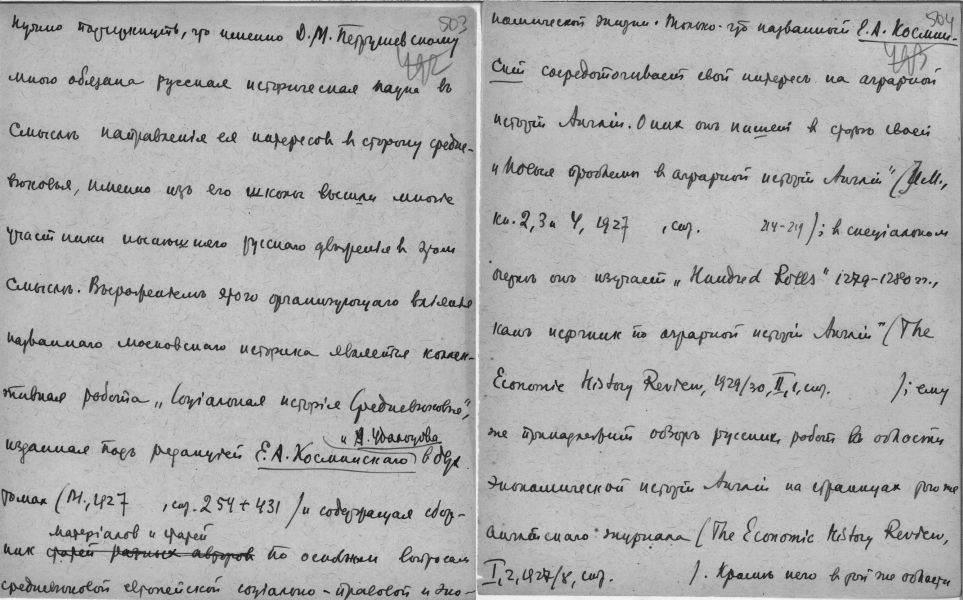 503
492
нужно подчеркнуть, что именно Д.М. Петрушевскому
много обязана русская историческая наука въ
смыслѣ направленія ея интересов в сторону средне-
вѣковья, именно изъ его школы вышли многіе
участники носаго русскаго движенія в этом
смыслѣ. Выраженіемъ этого организующаго вліянія
названнаго московскаго историка является коллек-
тивная работа „Соціальная исторія Средневѣковья",
и А. Удальцова
изданная подъ редакціей Е.А. Косминскаго в двух
томах (М., 1927 , стр. 254 + 431) и содержащая сбор-
матеріалов и статей
ник статей разных авторов по основным вопросам
средневѣковой европейской соціально-правовой и эко-
504
493
номической жизни. Только-что названный Е.А. Космин-
скій сосредоточивает свой интерес на аграрной
исторіи Англіи. О них онъ пишет в статьѣ своей
„Новыя проблемы в аграрной исторіи Англіи" (И.М.,
кн. 2, 3 и 4, 1927 , стр. 214-219); в спеціальном
очеркѣ онъ изучает „Hundred Rolls" 1279-1280 гг.,
какъ источник по аграрной исторіи Англіи" (The
Economic History Review, 1929/30, II, 1, стр. ); ему
же принадлежит обзоръ русских работ въ области
экономической исторіи Англіи на страницах того же
англійскаго журнала (The Economic History Review,
I, 2, 1927/8, стр. ). Кромѣ него в той же области